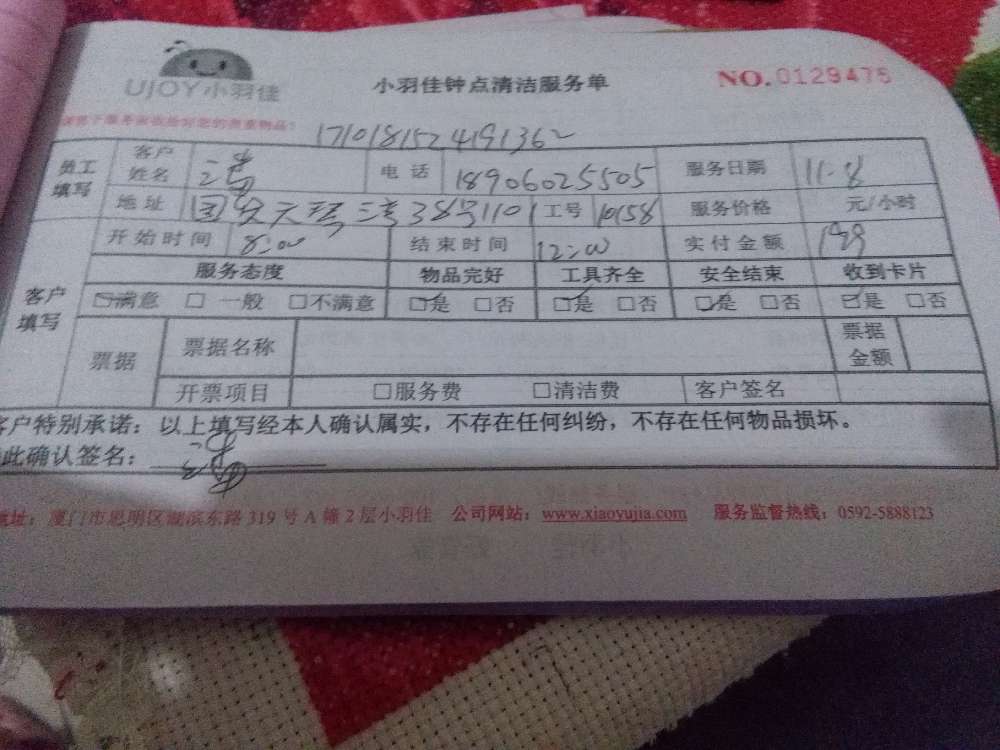 UJOY小羽佳 小羽佳钟点清洁服务单 NO.0129475
1710181524191362
员工填写 客户姓名 电话 18906025505 服务日期 11-8
地址 38号1101 工号 10158 服务价格 元/小时
开始时间 8:00 结束时间 12:00 实付金额
客户填写 服务态度 物品完好 工具齐全 安全结束 收到卡片
☑满意 □一般 □不满意 ☑是 □否 ☑是 □否 ☑是 □否 ☑是 □否
票据 票据名称 票据金额
开票项目 □服务费 □清洁费 客户签名
客户特别承诺：以上填写经本人确认属实，不存在任何纠纷，不存在任何物品损坏。
此确认签名：
地址：厦门市思明区湖滨东路 319 号 A 幢 2 层小羽佳 公司网站：www.xiaoyujia.com 服务监督热线：0592-5888123